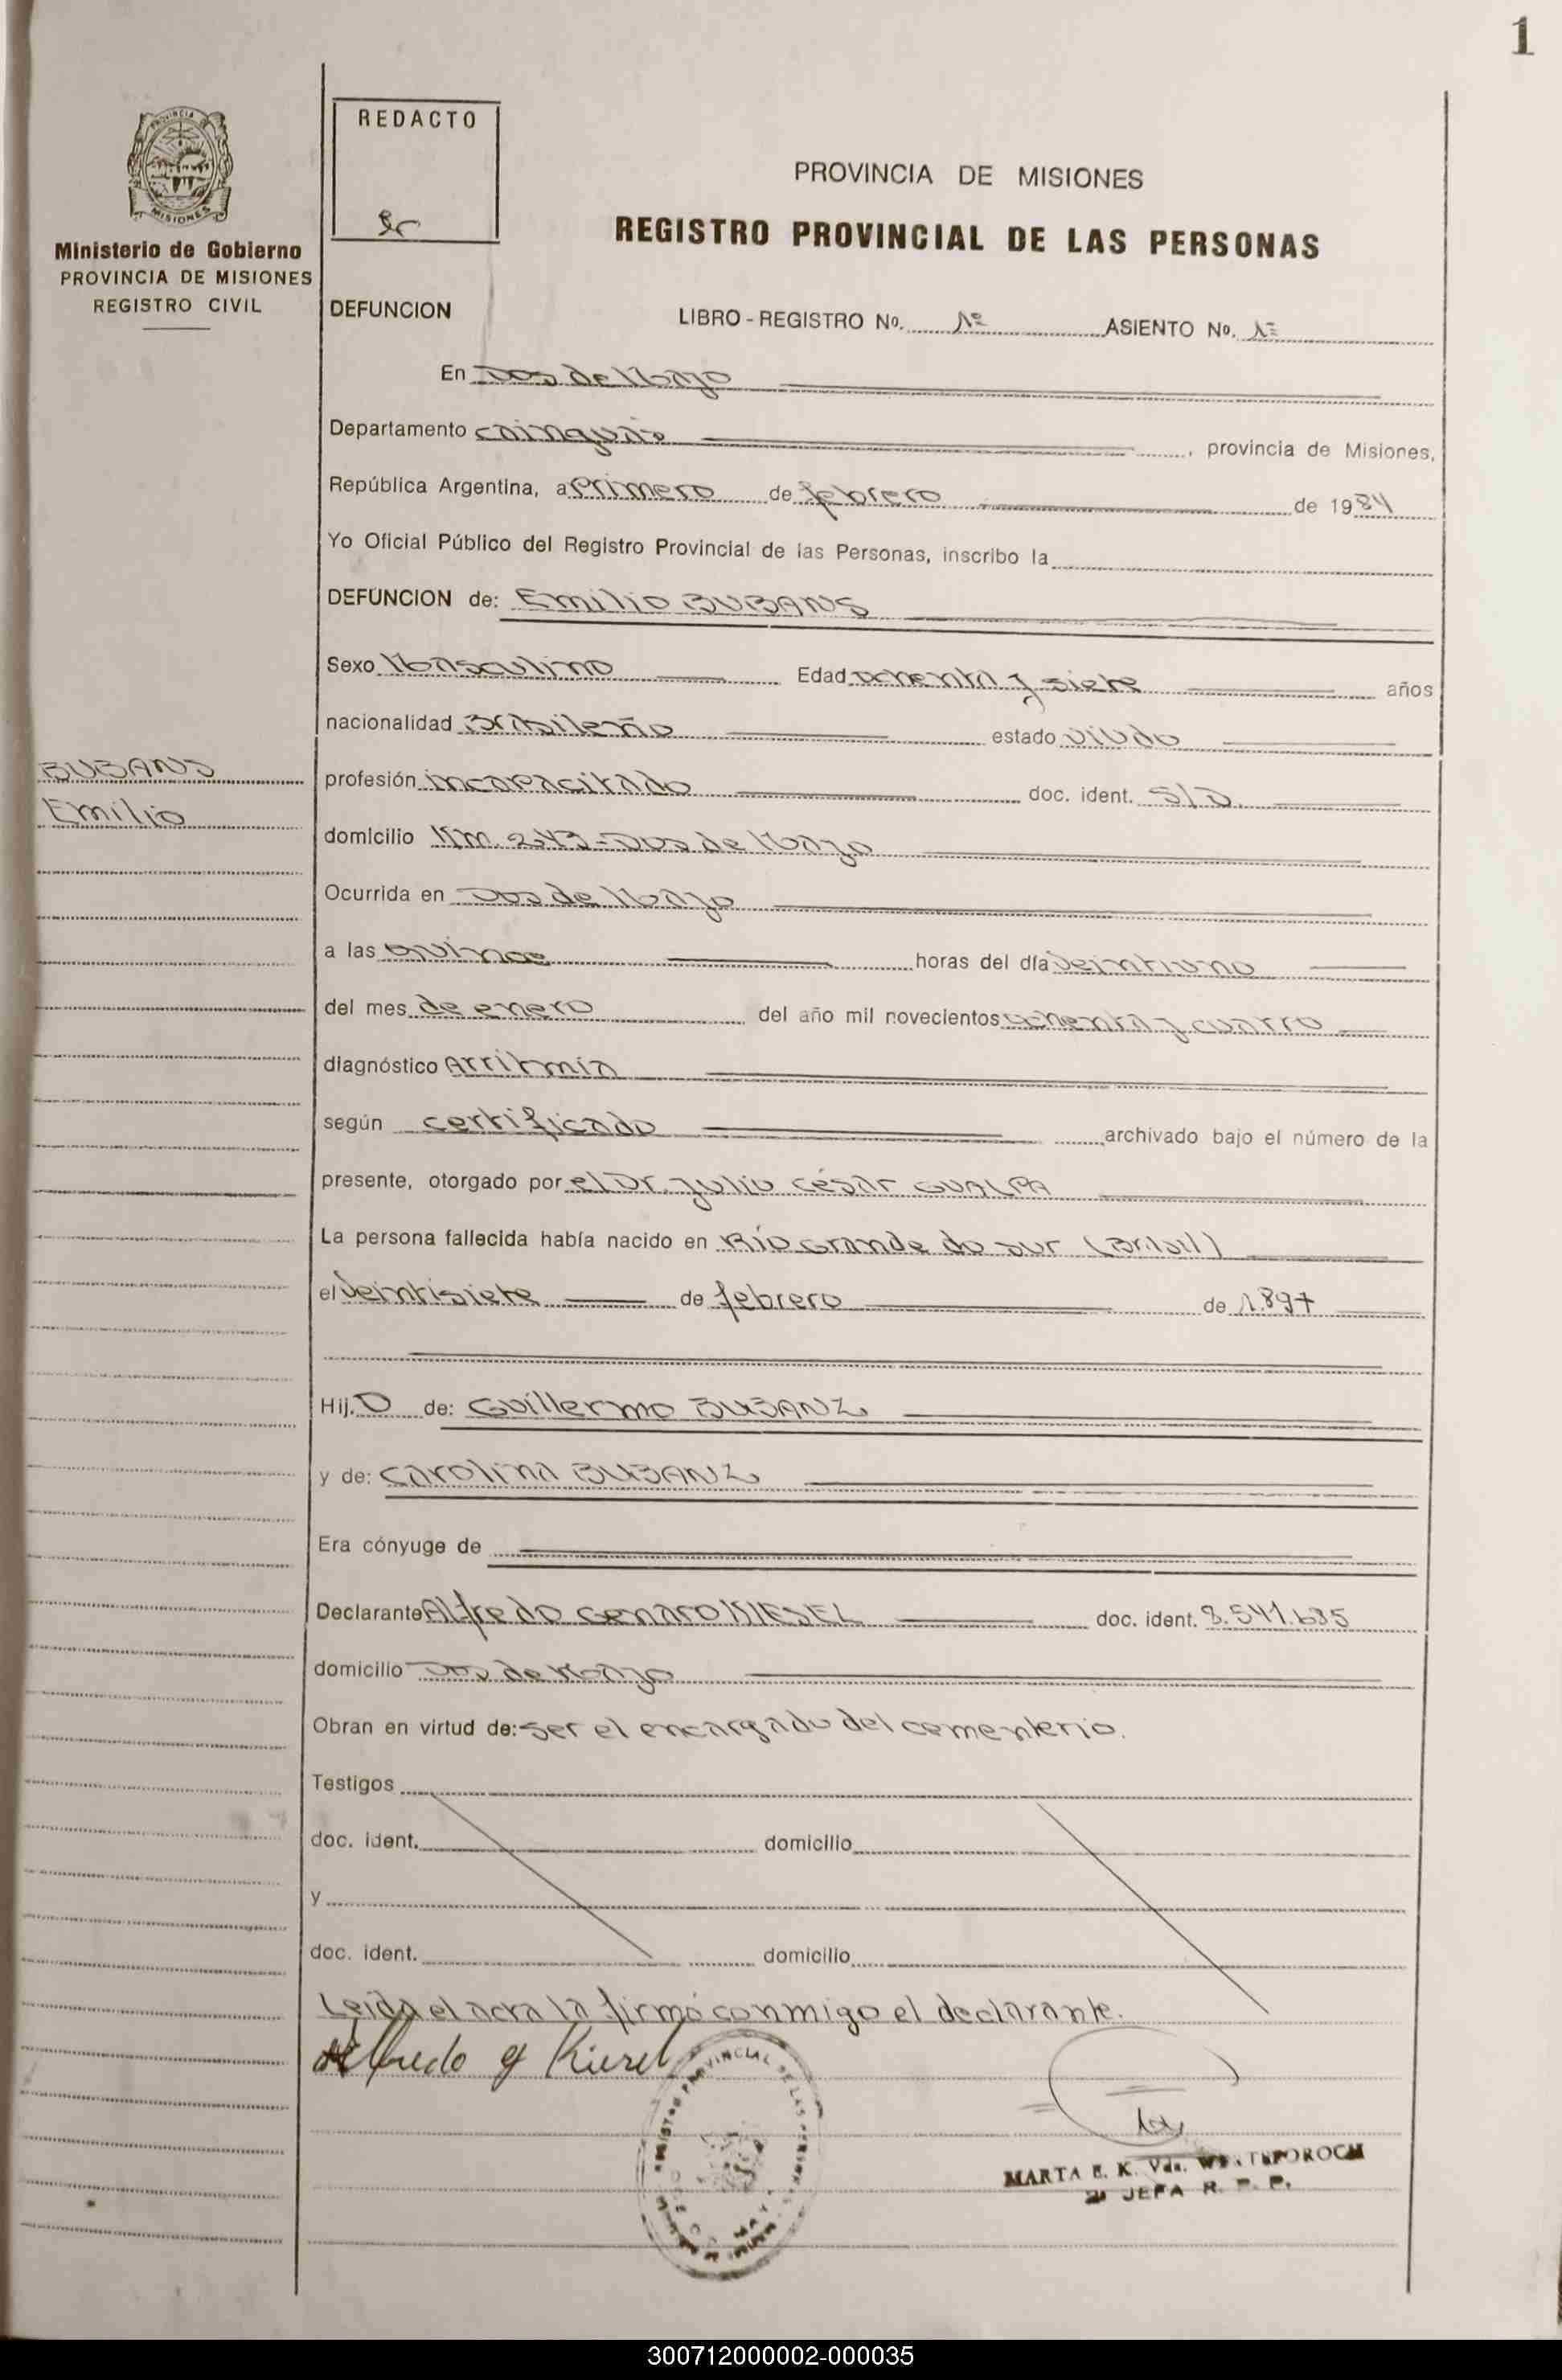 1
REDACTO
PROVINCIA DE
MISIONES
Ministerio de Gobierno
PROVINCIA DE MISIONES
REGISTRO CIVIL
PROVINCIA DE MISIONES
REGISTRO PROVINCIAL DE LAS PERSONAS
DEFUNCION LIBRO - REGISTRO No. 1º ASIENTO No. 1º
En Dos de Mayo
Departamento Cainguás, provincia de Misiones,
República Argentina, a Primero de febrero de 1984
Yo Oficial Público del Registro Provincial de las Personas, inscribo la
DEFUNCION de: Emilio BUBANS
Sexo Masculino Edad ochenta y siete años
nacionalidad Brasileño estado viudo
BUBANS
Emilio
profesión incapacitado doc. ident. S/D.
domicilio Km. 243 - Dos de Mayo
Ocurrida en Dos de Mayo
a las quince horas del día veintiuno
del mes de enero del año mil novecientos ochenta y cuatro
diagnóstico Arritmia
según certificado archivado bajo el número de la
presente, otorgado por el Dr. Julio César GUALPA
La persona fallecida había nacido en Río Grande do sur (Brasil)
el veintisiete de febrero de 1.897
Hij.o de: Guillermo BUBANZ
y de: Carolina BUBANZ
Era cónyuge de
Declarante Alfredo Genaro KIESEL doc. ident. 8.541.635
domicilio Dos de Mayo
Obran en virtud de: ser el encargado del cementerio.
Testigos
doc. ident. domicilio
y
doc. ident. domicilio
Leída el acta la firmó conmigo el declarante.
Alfredo g Kiesel
MARTA E. K. Vda.
JEFA R. P. P.
300712000002-000035